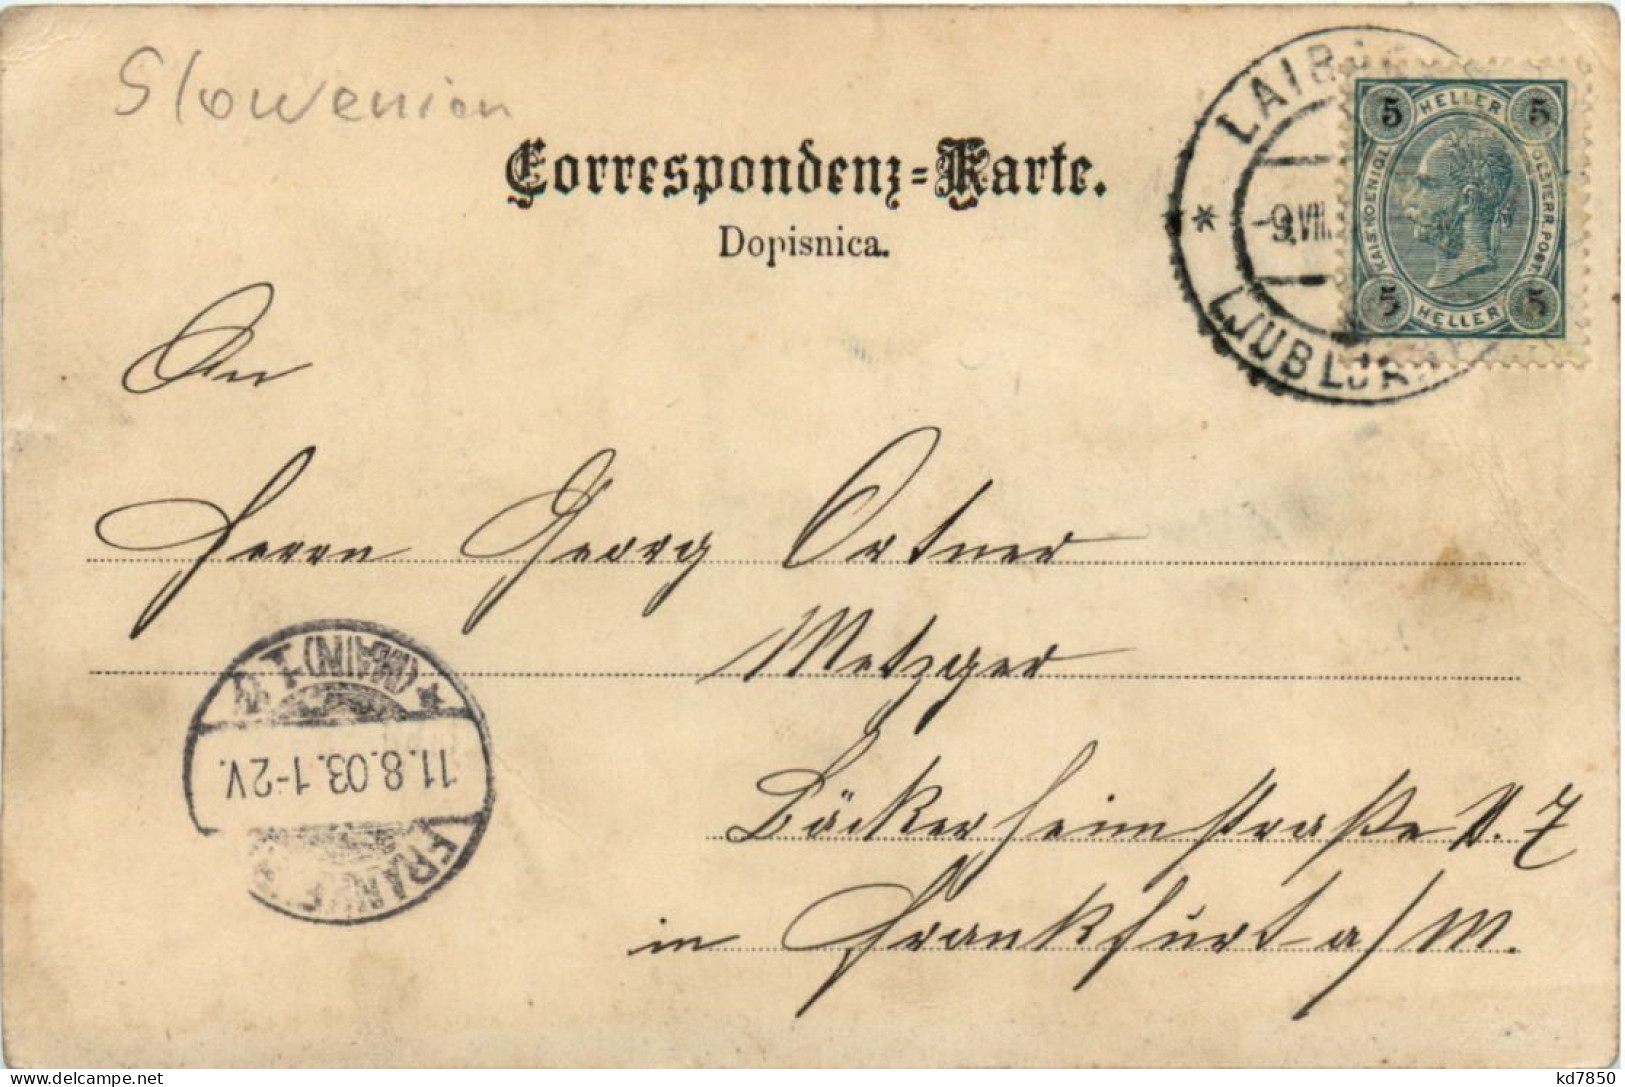 Slowenien
Correspondenz-Karte.
Dopisnica.
LAIB
-9.VIII.
LJUBLJA
5 HELLER 5
KAIS. KOENIGL. OESTERR. POST.
5 HELLER 5
An
Herrn Georg Ortner
Metzger
Bäckerheimstraße N. 7
in Frankfurt a/M.
FRANKF (MAIN) 1
11.8.03. 1-2V.
kd7850